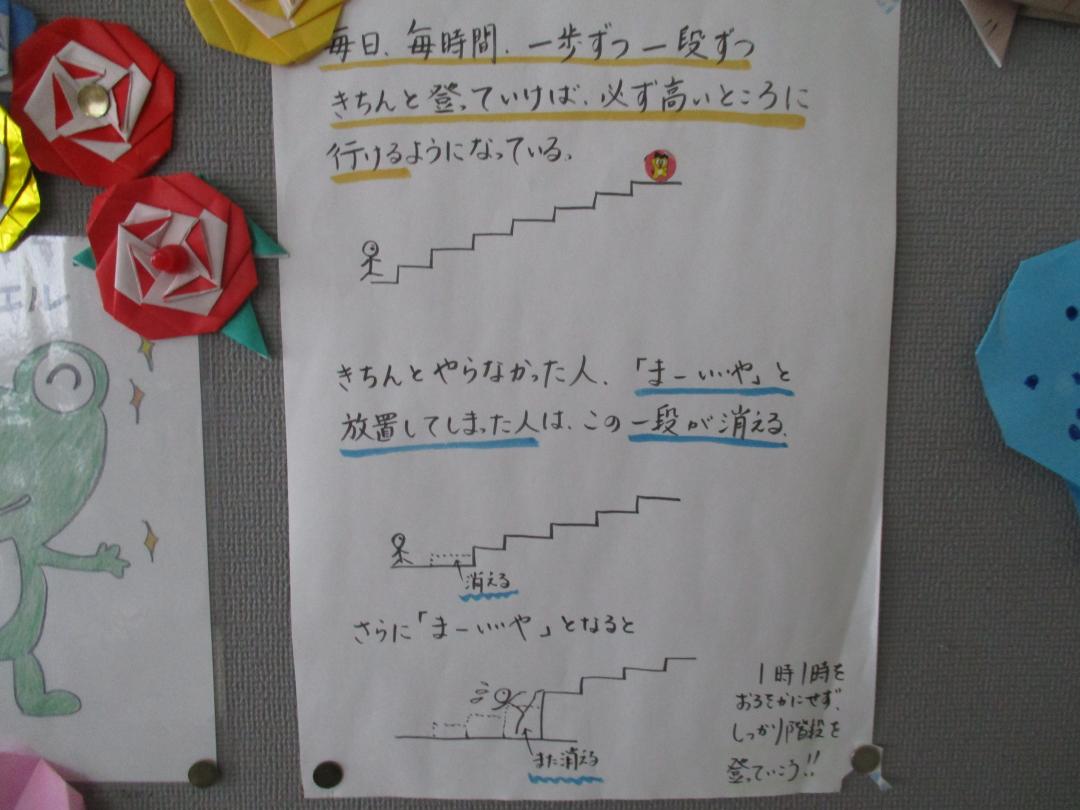 毎日、毎時間、一歩ずつ一段ずつ
きちんと登っていけば、必ず高いところに
行けるようになっている。
きちんとやらなかった人、「まーいいや」と
放置してしまった人は、この一段が消える。
消える
さらに「まーいいや」となると
また消える
1時1時を
おろそかにせず、
しっかり階段を
登っていこう!!
エル